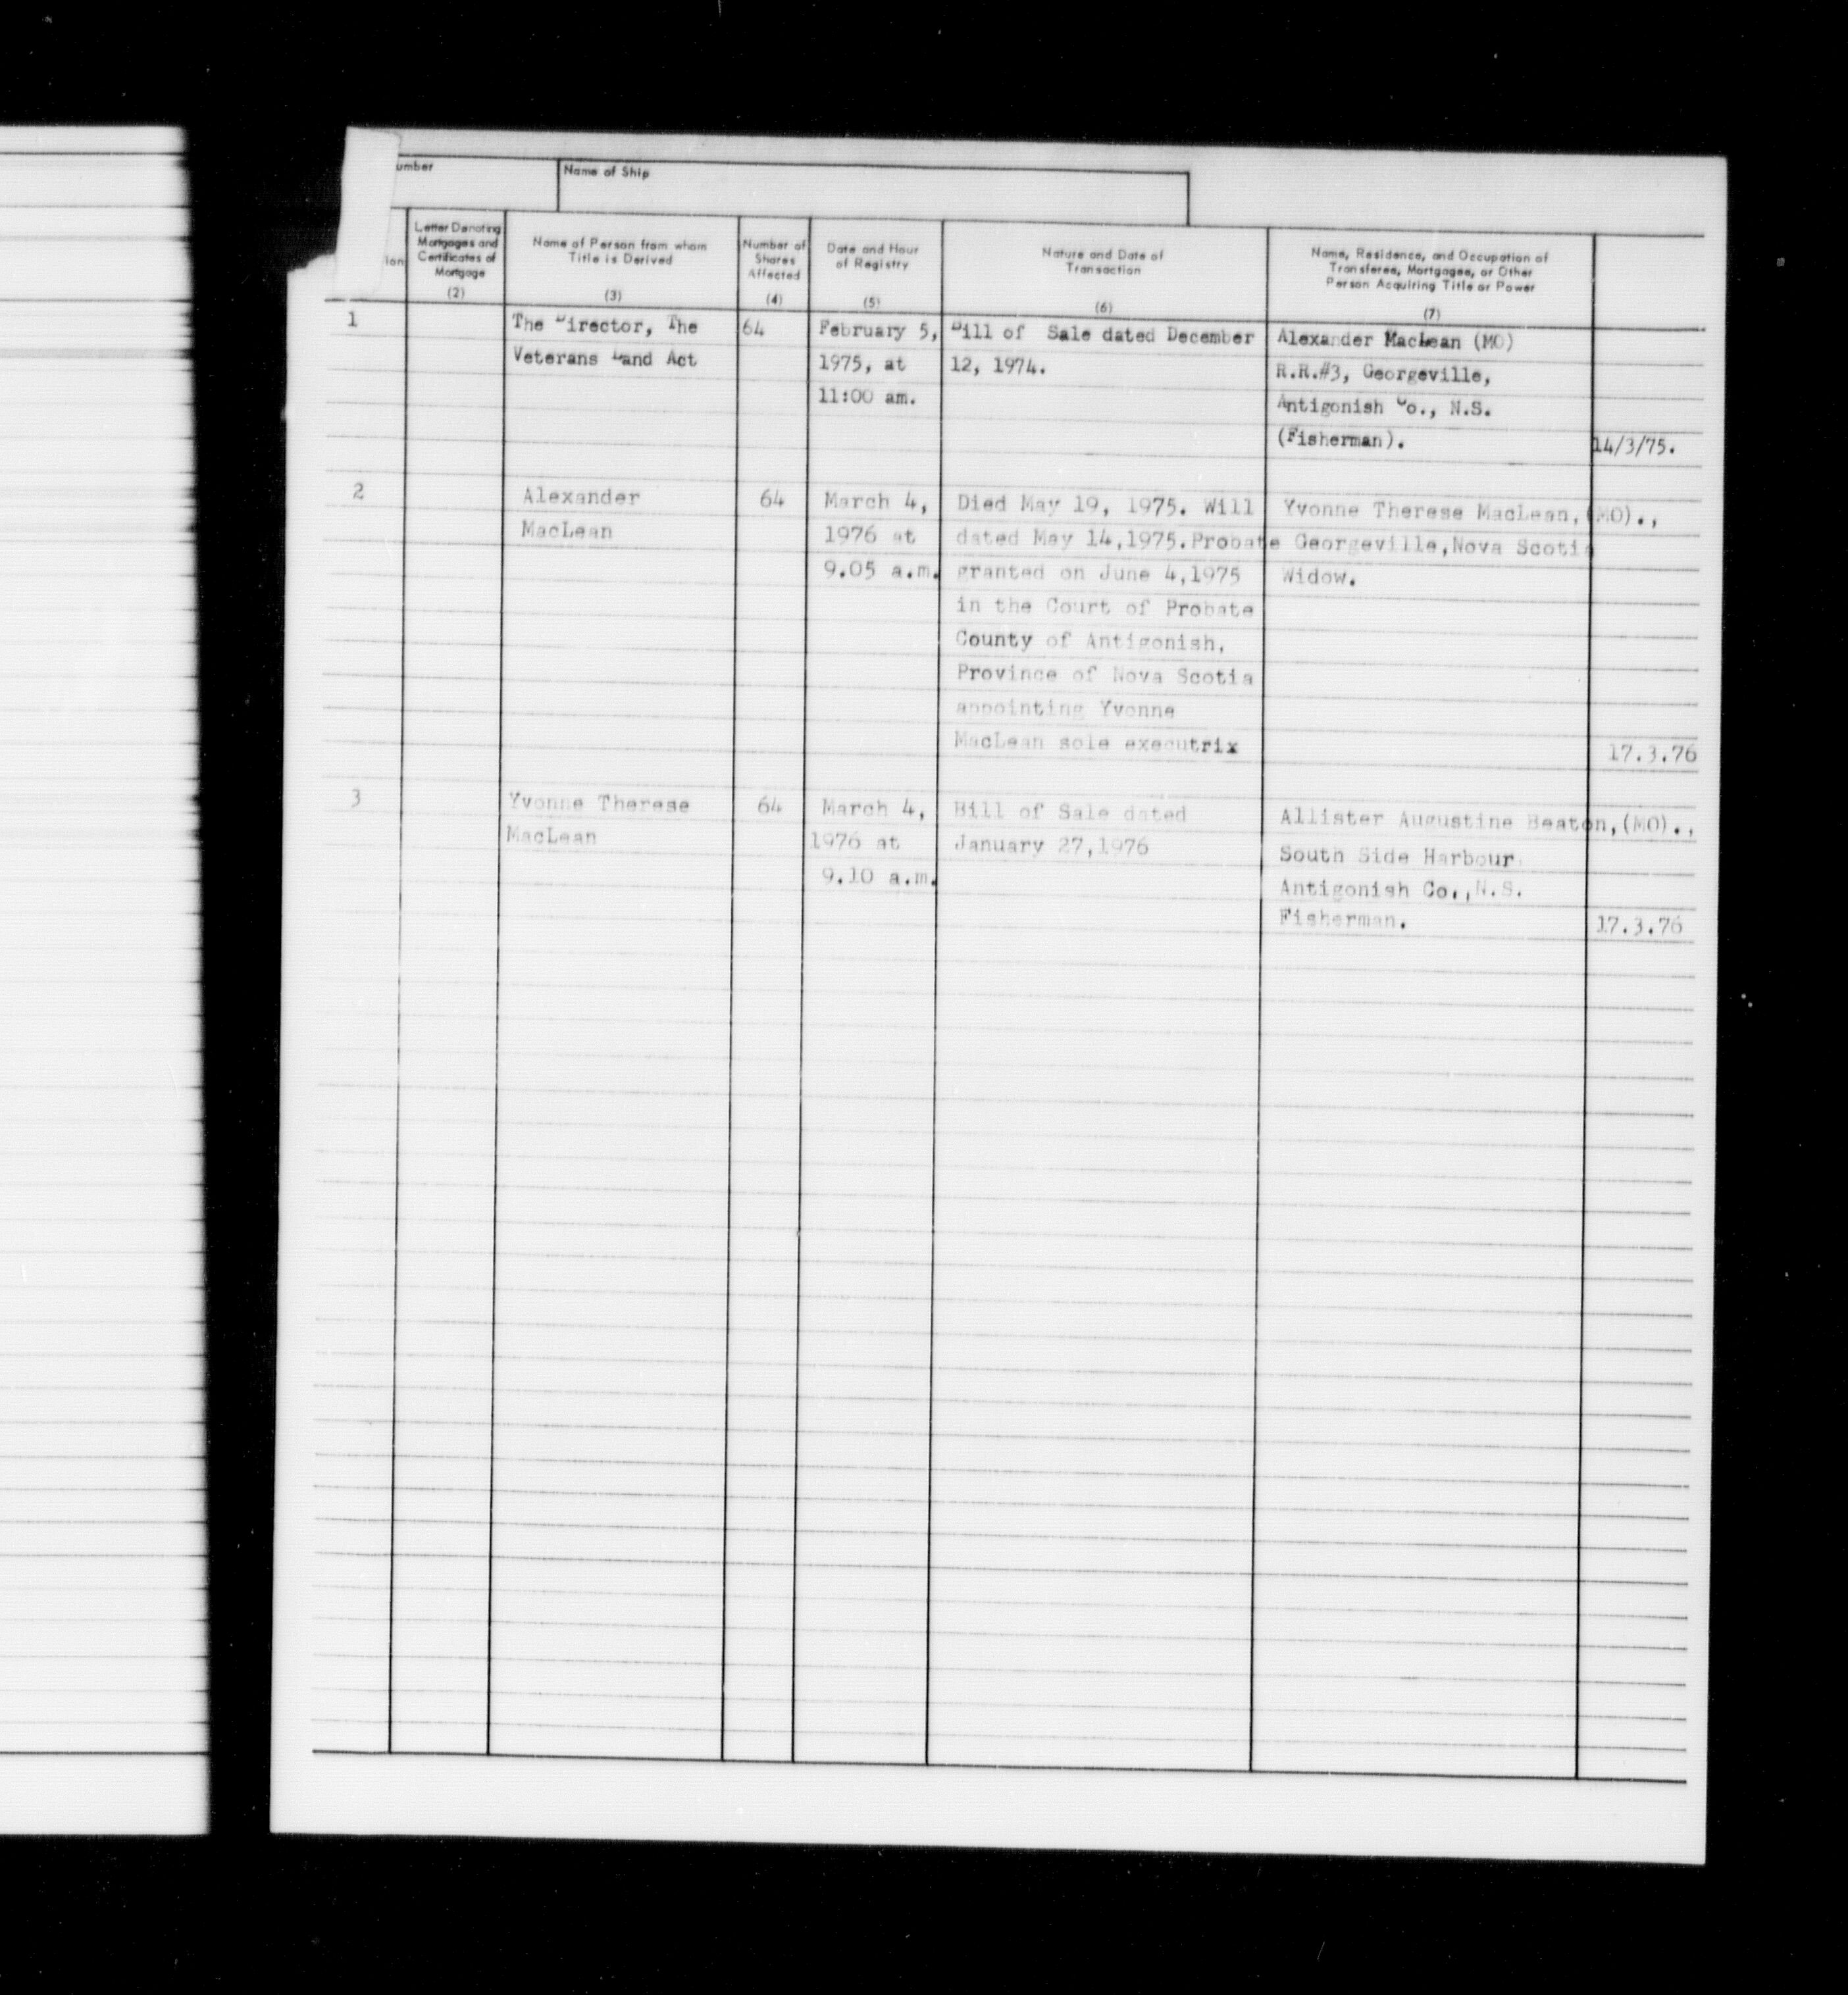 umber
Name of Ship
ion
Letter Denoting
Mortgages and
Certificates of
Mortgage
(2)
Name of Person from whom
Title is Derived
(3)
Number of
Shares
Affected
(4)
Date and Hour
of Registry
(5)
Nature and Date of
Transaction
(6)
Name, Residence, and Occupation of
Transferee, Mortgagee, or Other
Person Acquiring Title or Power
(7)
1
The Director, The
Veterans Land Act
64
February 5,
1975, at
11:00 am.
Bill of Sale dated December
12, 1974.
Alexander MacLean (MO)
R.R.#3, Georgeville,
Antigonish Co., N.S.
(Fisherman).
14/3/75.
2
Alexander
MacLean
64
March 4,
1976 at
9.05 a.m.
Died May 19, 1975. Will
dated May 14,1975.Probate
granted on June 4,1975
in the Court of Probate
County of Antigonish,
Province of Nova Scotia
appointing Yvonne
MacLean sole executrix
Yvonne Therese MacLean,(MO).,
Georgeville,Nova Scotia
Widow.
17.3.76
3
Yvonne Therese
MacLean
64
March 4,
1976 at
9.10 a.m.
Bill of Sale dated
January 27,1976
Allister Augustine Beaton,(MO).,
South Side Harbour
Antigonish Co.,N.S.
Fisherman.
17.3.76